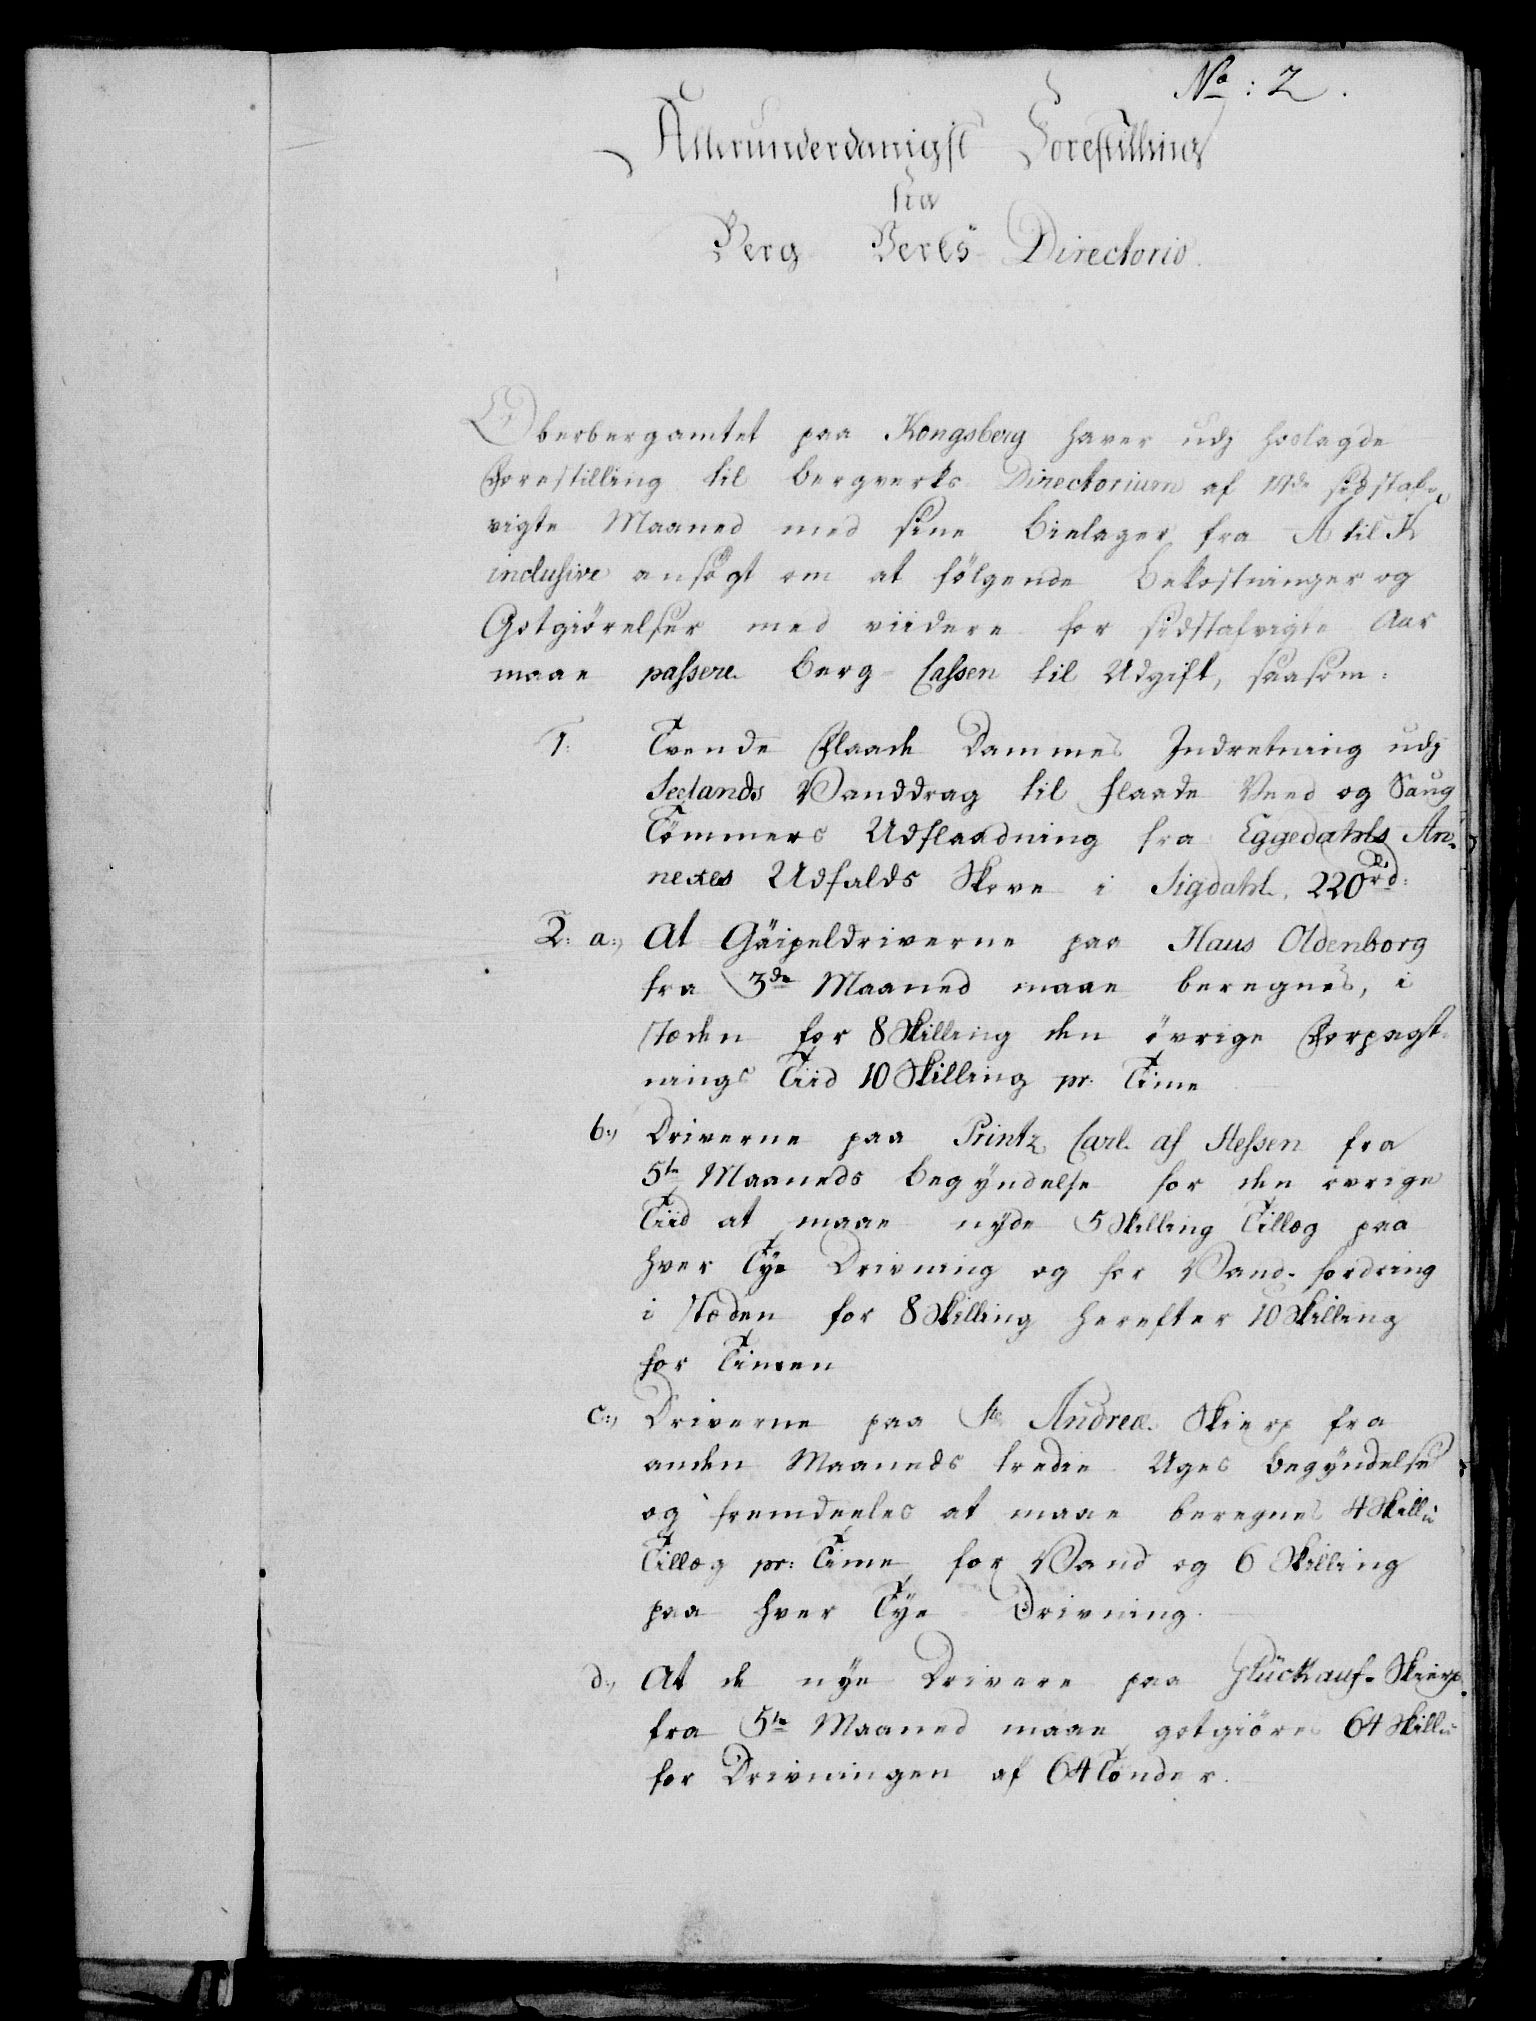 No: 2.
Allerunderdanigst Forestilling
fra
Berg Verks Directorio.
Oberbergamtet paa Kongsberg haver udj hoslagde
Forestilling til Bergverks Directorium af 19de sidstaf-
vigte Maaned med sine Bielager fra A til K
inclusive ansögt om at fölgende Bekostninger og
Gotgiörelser med viidere for sidstafvigte Aar
maae passere Berg-Cassen til Udgift, saasom:
1: Tvende Flaade Dammes Indretning udj
Seelands Vanddrag til flaade Veed og Saug
Tömmers Udflaadning fra Eggedahls An-
nexes Udfalds Skove i Sigdahl. 220 rd:
2: a:, At Gäipeldriverne paa Haus Oldenborg
fra 3de Maaned maae beregnes, i
stæden for 8 Skilling den övrige Forpagt-
nings Tiid 10 Skilling pr. Time
b:, Driverne paa Printz Carl af Hessen fra
5te Maaneds Begyndelse for den övrige
Tiid at maae nyde 5 Skilling Tillæg paa
hver Tye Drivning og for Vand-fordring
i stæden for 8 Skilling herefter 10 Skilling
for Timen
c:, Driverne paa St. Andreæ Skierp fra
anden Maaneds tredie Uges Begyndelse
og fremdeeles at maae beregnes 4 Skill:
Tillæg pr: Time for Vand og 6 Skilling
paa hver Tye Drivning.
d:, At de nye Drivere paa Glückauf-Skierp
fra 5te Maaned maae gotgiöres 64 Skill:
for Drivningen af 64 Tönder.